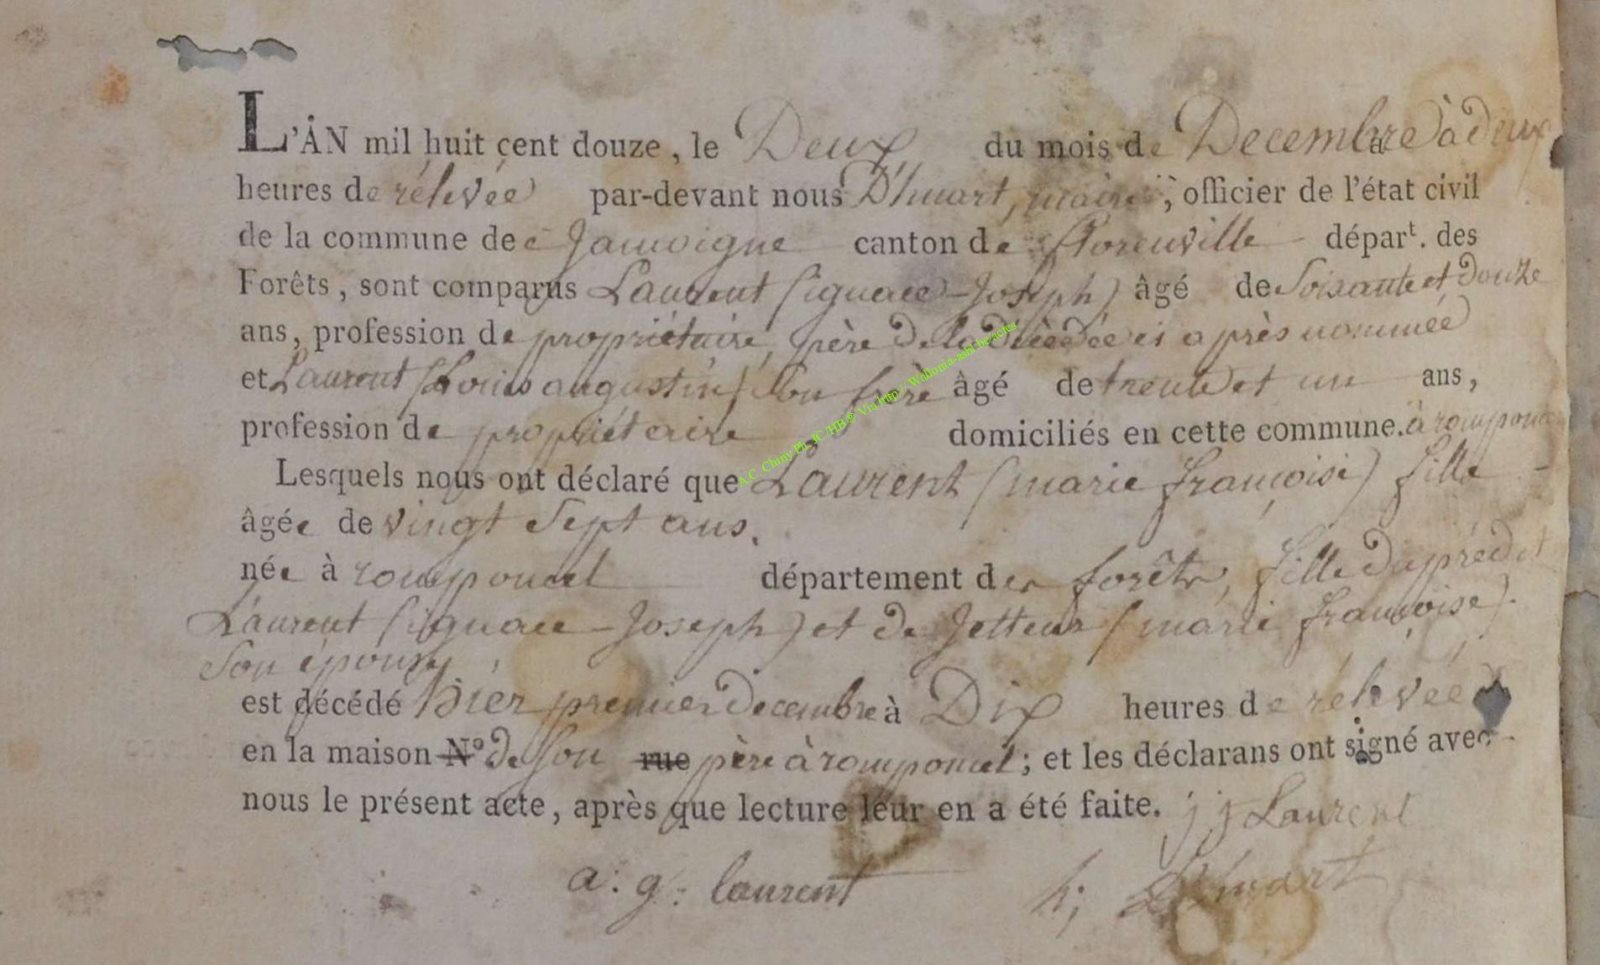 L'AN mil huit cent douze, le Deux du mois de Decembre à deux
heures de rélevée par-devant nous D'huart, maire, officier de l'état civil
de la commune de Jamoigne canton de florenville départ. des
Forêts, sont comparus Laurent (ignace-Joseph) âgé de Soisante et douze
ans, profession de propriétaire, père de la décédée ci après nommée
et Laurent (Louis augustin) son frère âgé de trente et un ans,
profession de propriétaire domiciliés en cette commune. à romponcel
Lesquels nous ont déclaré que Laurent (marie françoise) fille
âgée de vingt Sept ans.
née à romponcel département des forêts, fille du prédit
Laurent (ignace-Joseph) et de Jetteur (marie françoise).
Son épouse,
est décédé hier premier decembre à Dix heures de rélevée
en la maison N° de son rue père à romponcel; et les déclarans ont signé avec
nous le présent acte, après que lecture leur en a été faite. j j Laurent
a: g: laurent h; D'huart